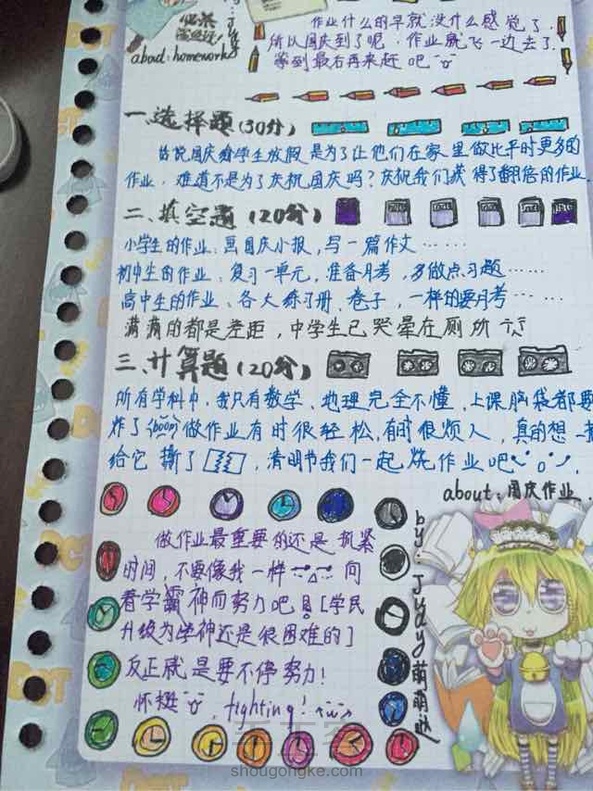 about:homework
作业什么的早就没什么感觉了,
所以国庆到了呢,作业就飞一边去了.
等到最后再来赶吧
一、选择题(30分)
话说国庆给学生放假是为了让他们在家里做比平时更多的
作业,难道不是为了庆祝国庆吗?庆祝我们获得了翻倍的作业.
二、填空题(20分)
小学生的作业、画国庆小报,写一篇作文……
初中生的作业、复习一单元,准备月考,多做点习题……
高中生的作业、各大练习册、卷子,一样的要月考……
满满的都是差距,中学生已哭晕在厕所
三、计算题(20分)
所有学科中,我只有数学、地理完全不懂,上课脑袋都要
炸了(boom)做作业有时很轻松,有时很烦人,真的想一
给它撕了,清明节我们一起烧作业吧
about:国庆作业.
做作业最重要的还是抓紧
时间,不要像我一样 向
着学霸神而努力吧![学民
升级为学神还是很困难的]
反正就是要不停努力!
怀挺 , fighting!
by:Jydy萌萌哒
shougongke.com